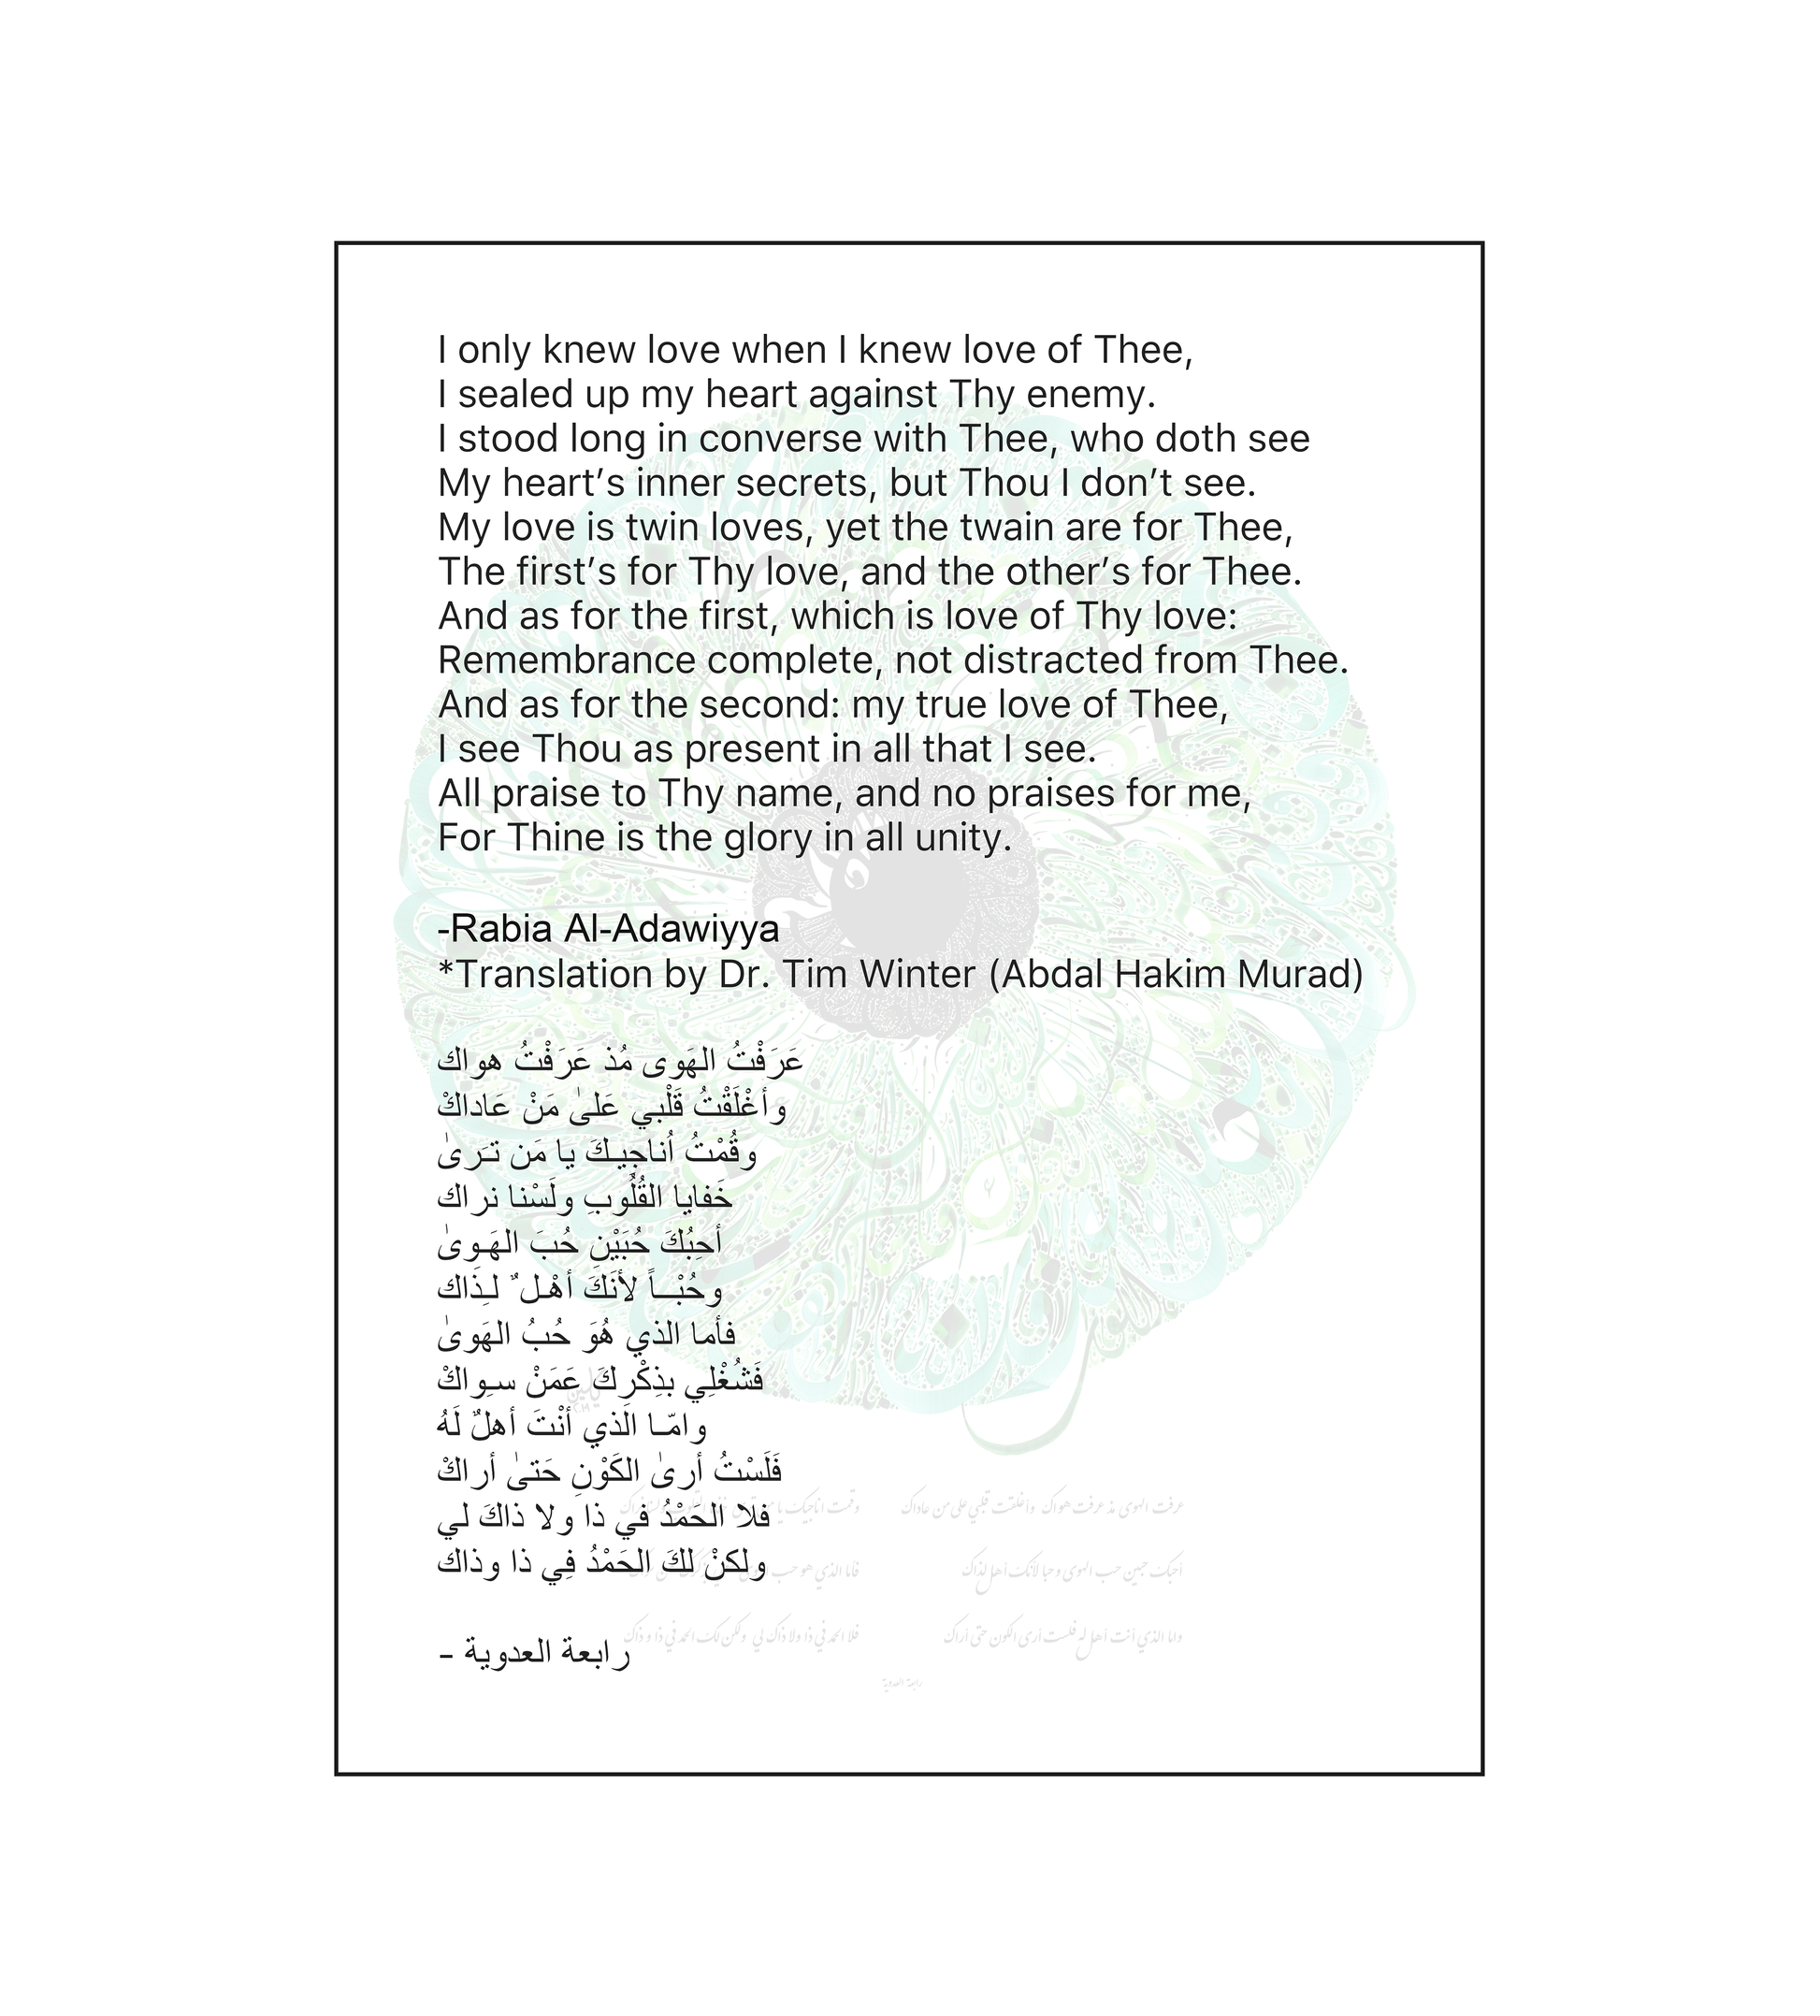 I only knew love when I knew love of Thee,
I sealed up my heart against Thy enemy.
I stood long in converse with Thee, who doth see
My heart’s inner secrets, but Thou I don’t see.
My love is twin loves, yet the twain are for Thee,
The first’s for Thy love, and the other’s for Thee.
And as for the first, which is love of Thy love:
Remembrance complete, not distracted from Thee.
And as for the second: my true love of Thee,
I see Thou as present in all that I see.
All praise to Thy name, and no praises for me,
For Thine is the glory in all unity.
-Rabia Al-Adawiyya
*Translation by Dr. Tim Winter (Abdal Hakim Murad)
عَرَفْتُ الهَوى مُذ عَرَفْتُ هواك
وأغْلَقْتُ قَلْبي عَلىٰ مَنْ عَاداكْ
وقُمْتُ أُناجِيـكَ يا مَن تـَرىٰ
خَفايا القُلُوبِ ولَسْنا نراك
أحِبُكَ حُبَيْنِ حُبَ الهَـوىٰ
وحُبْــاً لأنَكَ أهْـل ٌ لـِذَاك
فأما الذي هُوَ حُبُ الهَوىٰ
فَشُغْلِي بذِكْرِكَ عَمَنْ سـِواكْ
وامّـا الَذي أنْتَ أهلٌ لَهُ
فَلَسْتُ أرىٰ الكَوْنِ حَتىٰ أراكْ
فلا الحَمْدُ في ذا ولا ذاكَ لي
ولكنْ لكَ الحَمْدُ فِي ذا وذاك
رابعة العدوية –
عرفت الهوى مذ عرفت هواك وأغلقت قلبي على من عاداك
وقمت اناجيك يا من
أحبك حبين حب الهوى وحبا لأنك أهل لذاك
فأما الذي هو حب
واما الذي أنت أهل له فلست أرى الكون حتى أراك
فلا الحمد في ذا ولا ذاك لي ولكن لك الحمد في ذا و ذاك
رابعة العدوية